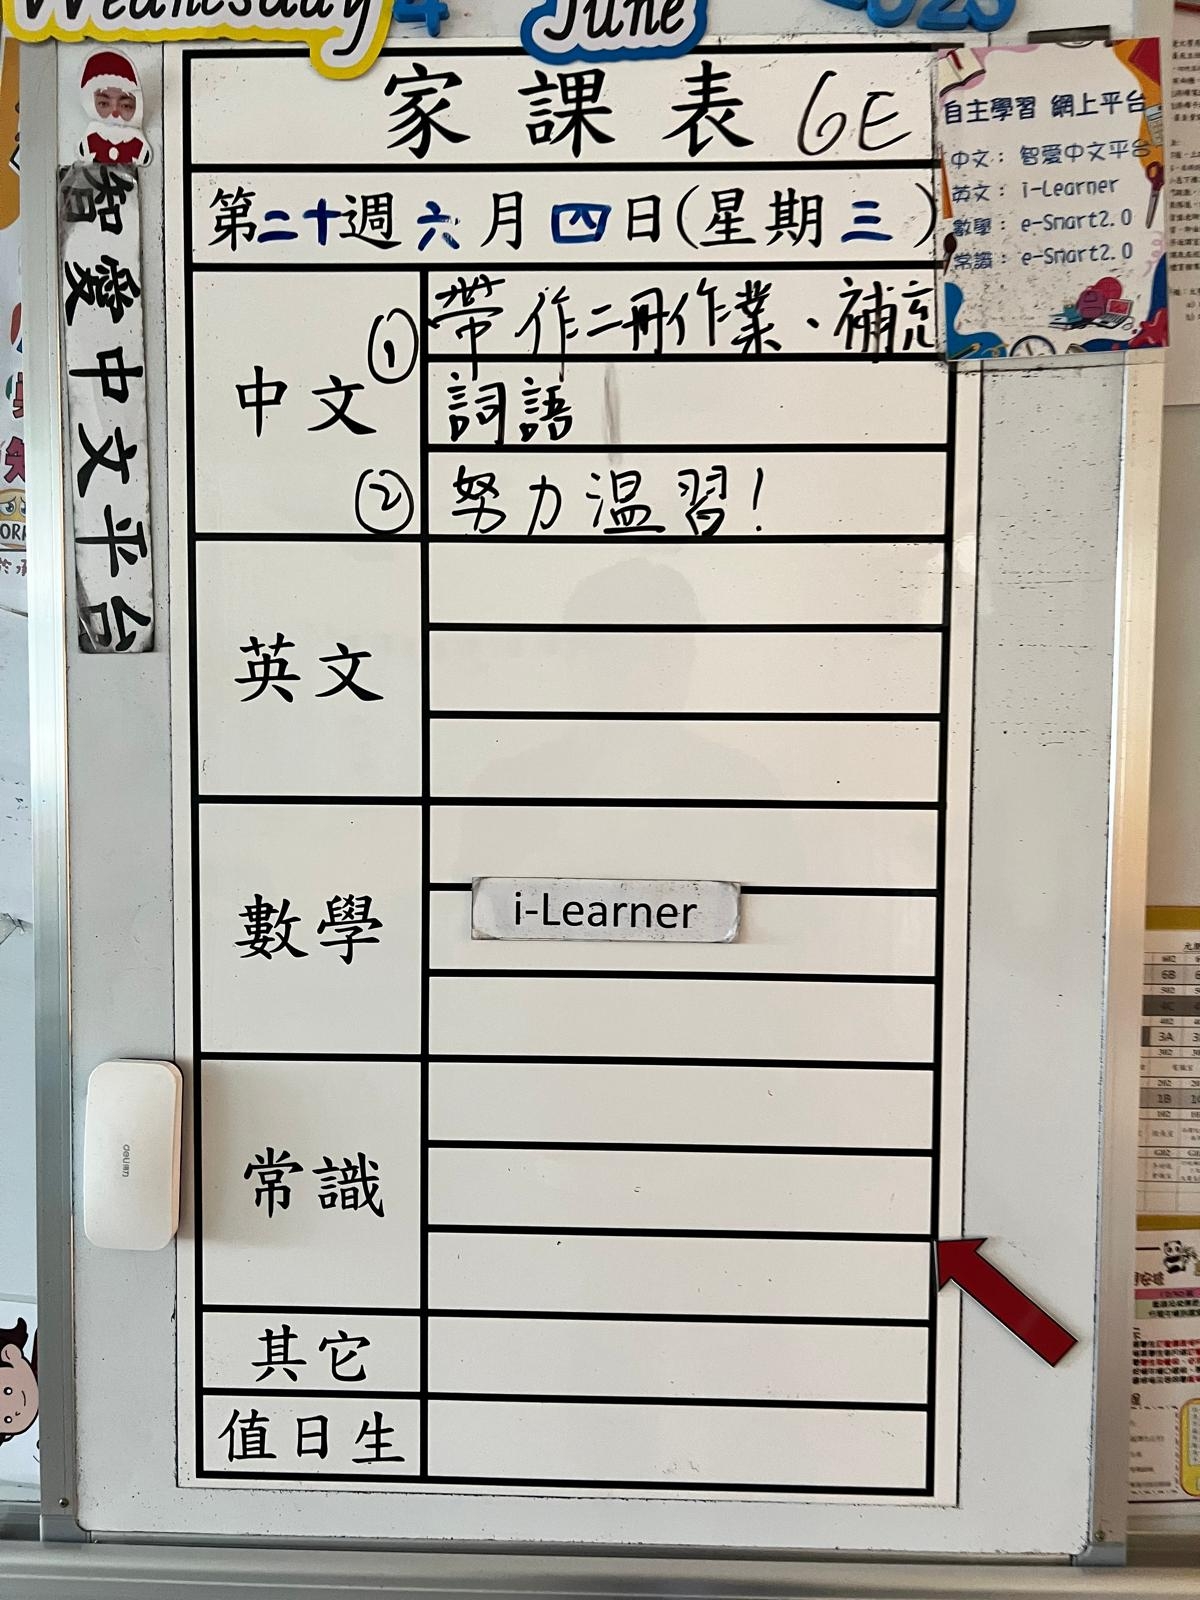 Wednesday 4 June 2025
家課表 6E
第二十週六月四日(星期三)
自主學習 網上平台
中文: 智愛中文平台
英文: i-Learner
數學: e-Smart2.0
常識: e-Smart2.0
智愛中文平台
中文
① 帶作二冊作業、補充
詞語
② 努力温習!
英文
數學
i-Learner
常識
deli得力
其它
值日生
6B
3A
1B